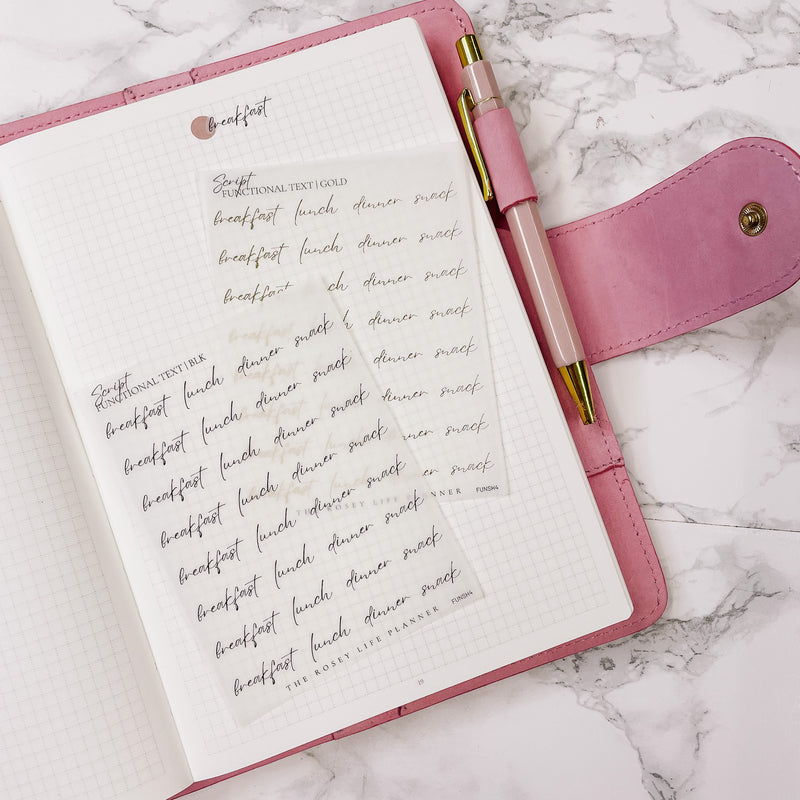 breakfast
Script
FUNCTIONAL TEXT | GOLD
breakfast lunch dinner snack
breakfast lunch dinner snack
breakfast ch dinner snack
breakfast h dinner snack
dinner snack
dinner snack
snack
snack
THE ROSEY LIFE PLANNER FUNSH4
Script
FUNCTIONAL TEXT | BLK
breakfast lunch dinner snack
breakfast lunch dinner snack
breakfast lunch dinner snack
breakfast lunch dinner snack
breakfast lunch dinner snack
breakfast lunch dinner snack
breakfast lunch dinner snack
breakfast lunch dinner snack
THE ROSEY LIFE PLANNER FUNSH4
19